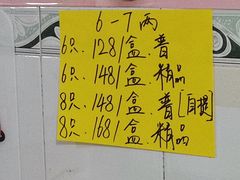 6-7两
6只.128/盒.普
6只.148/盒.精品
8只.148/盒.普[自提]
8只.168/盒.精品